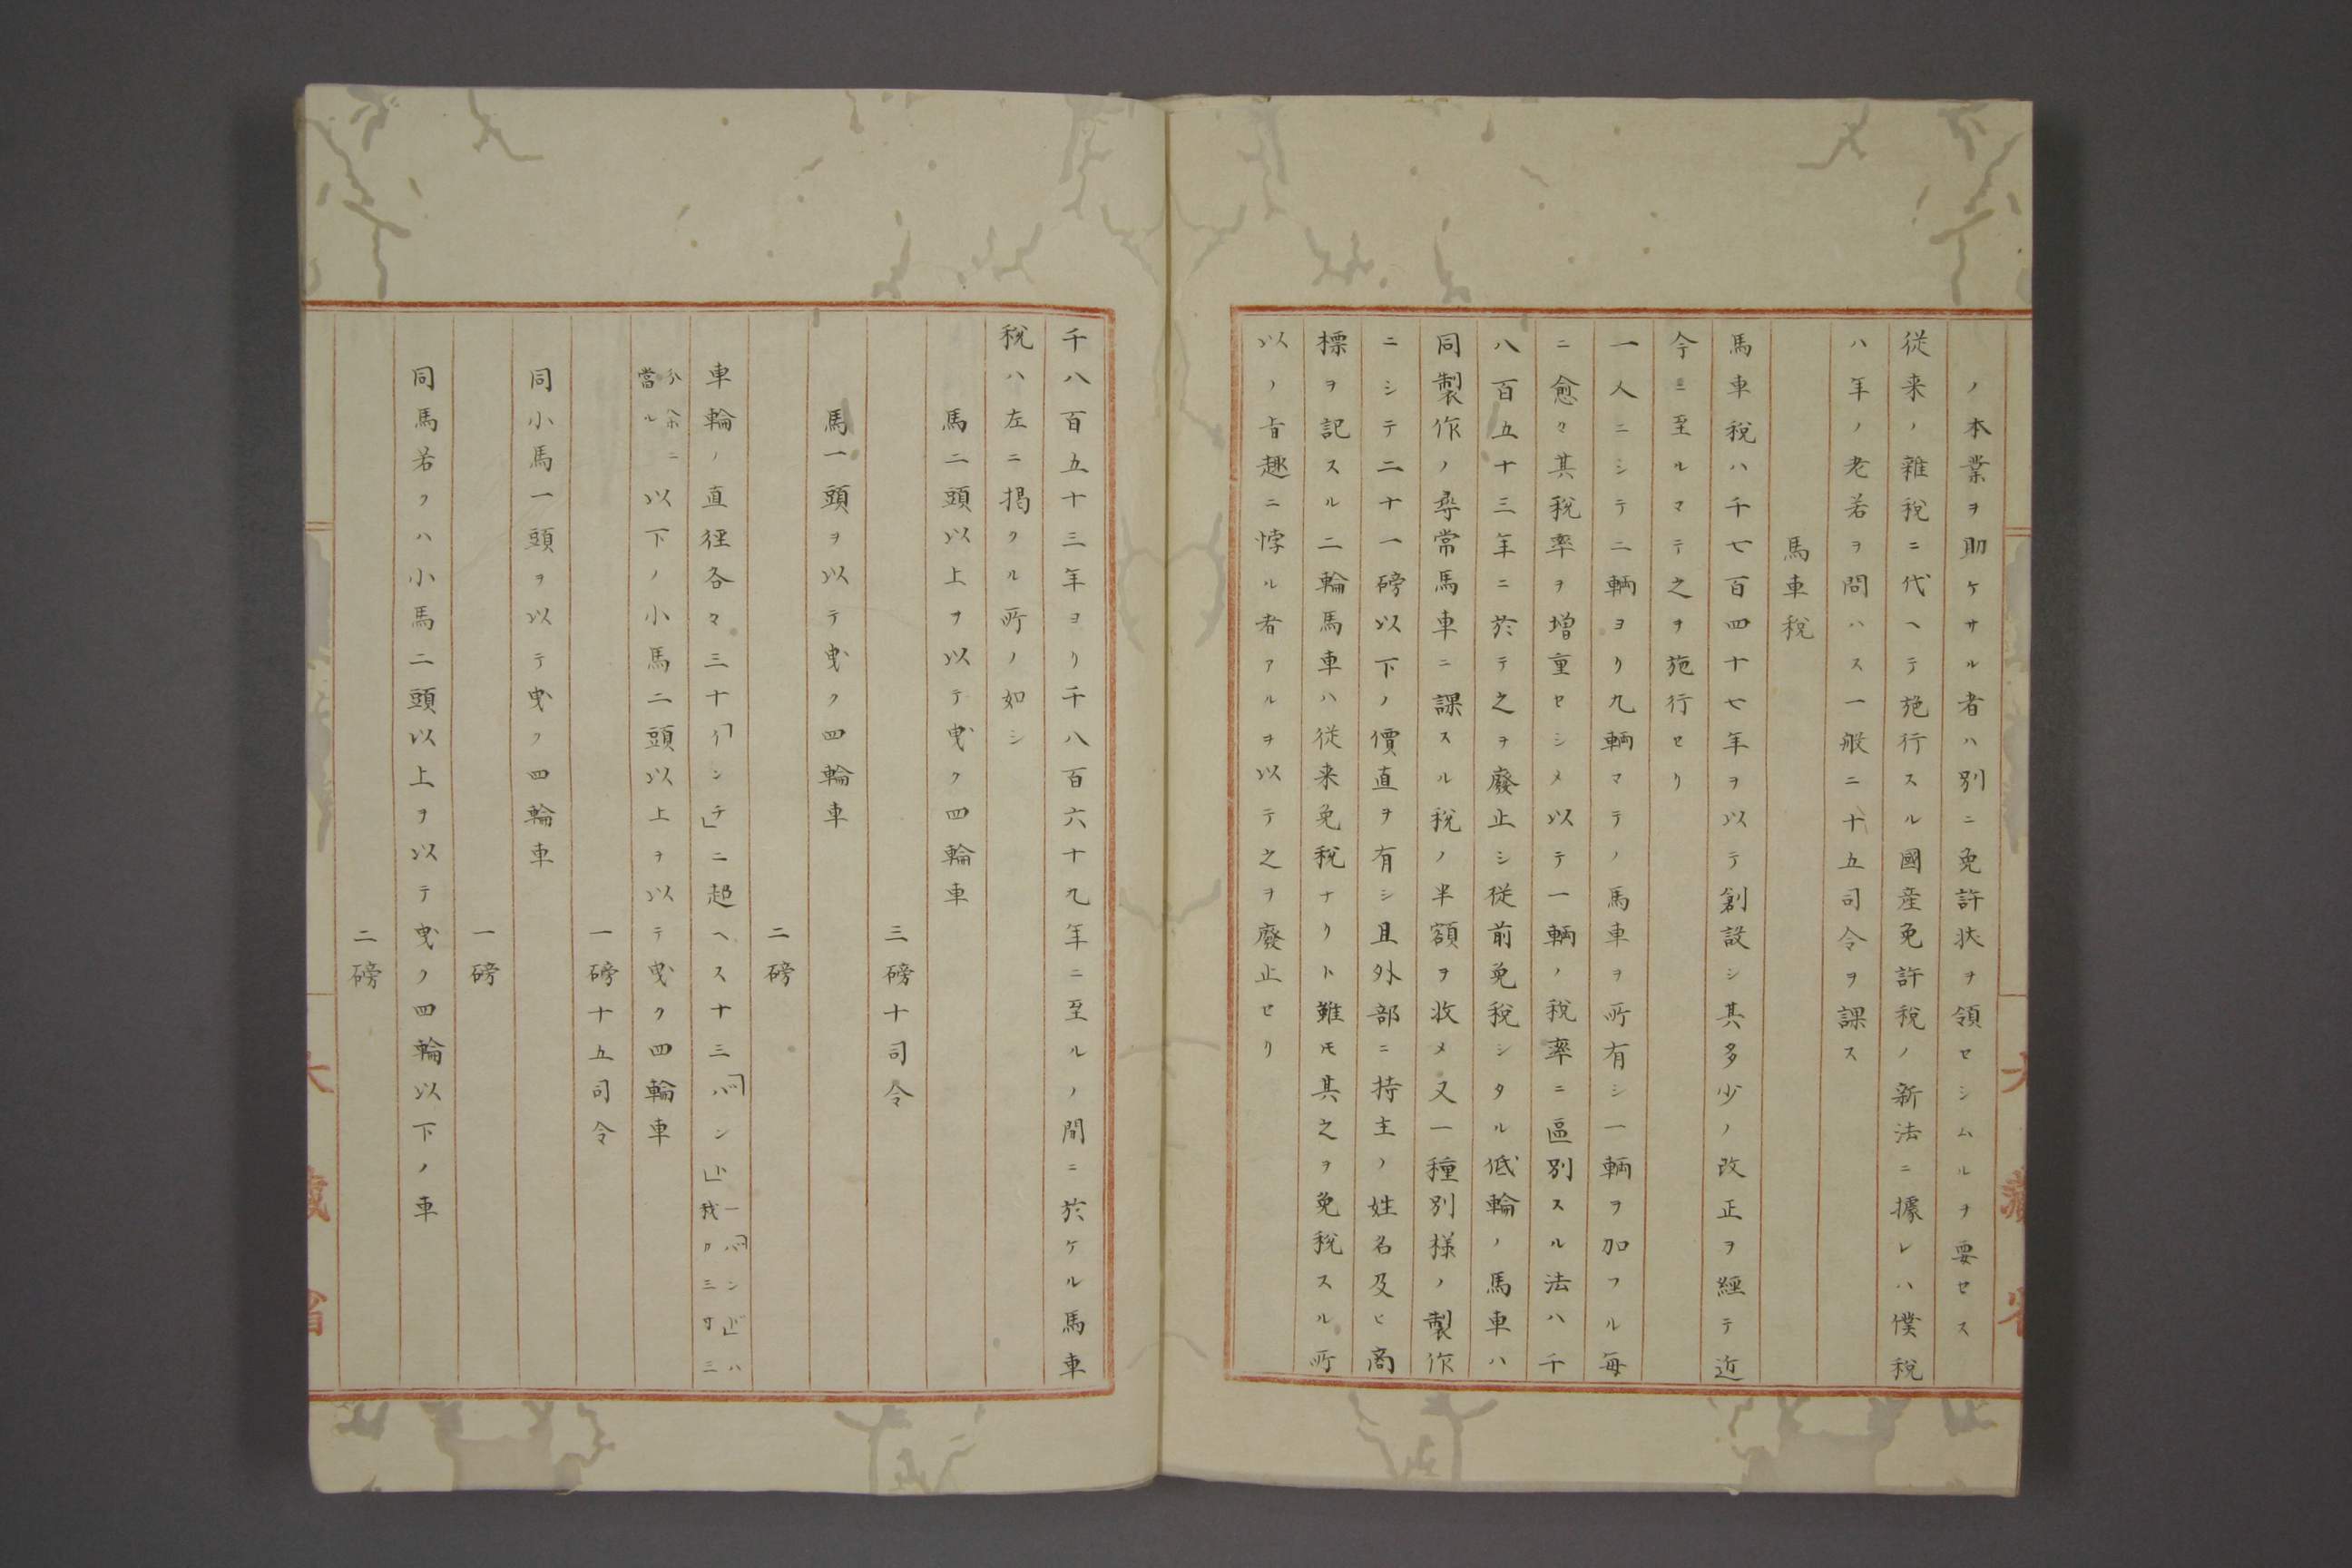 ノ本業ヲ助ケサル者ハ別ニ免許状ヲ領セシムルヲ要セス
従来ノ雜税ニ代ヘテ施行スル國産免許税ノ新法ニ據レハ僕税
ハ年ノ老若ヲ問ハス一般ニ十五司令ヲ課ス
馬車税
馬車税ハ千七百四十七年ヲ以テ創設シ其多少ノ改正ヲ經テ近
今ニ至ルマテ之ヲ施行セリ
一人ニシテ二輌ヨリ九輌マテノ馬車ヲ所有シ一輌ヲ加フル毎
ニ愈々其税率ヲ増重セシメ以テ一輌ノ税率ニ區別スル法ハ千
八百五十三年ニ於テ之ヲ廢止シ従前免税シタル低輪ノ馬車ハ
同製作ノ尋常馬車ニ課スル税ノ半額ヲ收メ又一種別様ノ製作
ニシテ二十一磅以下ノ價直ヲ有シ且外部ニ持主ノ姓名及ヒ商
標ヲ記スル二輪馬車ハ従来免税ナリト雖モ其之ヲ免税スル所
以ノ旨趣ニ悖ル者アルヲ以テ之ヲ廢止セリ
大藏省
千八百五十三年ヨリ千八百六十九年ニ至ルノ間ニ於ケル馬車
税ハ左ニ掲クル所ノ如シ
馬二頭以上ヲ以テ曳ク四輪車
三磅十司令
馬一頭ヲ以テ曳ク四輪車
二磅
車輪ノ直徑各々三十「インチ」ニ超ヘス十三「ハンド」一「ハンド」ハ我カ三寸三
分余ニ當ル以下ノ小馬二頭以上ヲ以テ曳ク四輪車
一磅十五司令
同小馬一頭ヲ以テ曳ク四輪車
一磅
同馬若クハ小馬二頭以上ヲ以テ曳ク四輪以下ノ車
二磅
大藏省